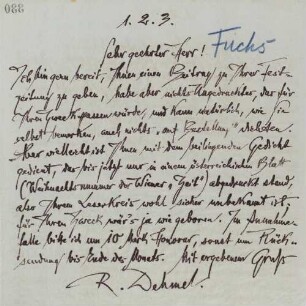 088
1.2.3.
Fuchs
Sehr geehrter Herr!
Ich bin gern bereit, Ihnen einen Beitrag zu Ihrer Fest-
zeitung zu geben, habe aber nichts Ungedrucktes, das für
Ihren Zweck passen würde, und kann natürlich, wie Sie
selbst bemerken, auch nichts „auf Bestellung“
Aber vielleicht ist Ihnen mit dem beiliegenden Gedicht
gedient, das bis jetzt nur in einem österreichischen Blatt
(Weihnachtsnummer der Wiener „Zeit“) abgedruckt stand,
also Ihrem Leserkreis wohl sicher unbekannt ist;
für Ihren Zweck wär's ja wie geboren. Im Annahme-
falle bitte ich um 10 Mark Honorar, sonst um Rück-
sendung bis Ende des Monats. Mit ergebenem Gruß
R. Dehmel.